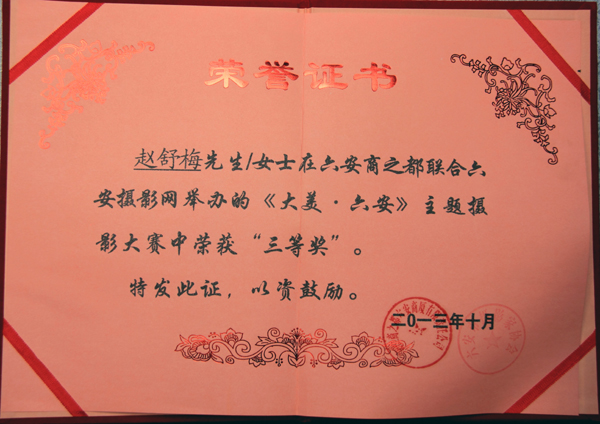 荣誉证书
赵舒梅先生/女士在六安商之都联合六
安摄影网举办的《大美·六安》主题摄
影大赛中荣获“三等奖”。
特发此证，以资鼓励。
二〇一三年十月